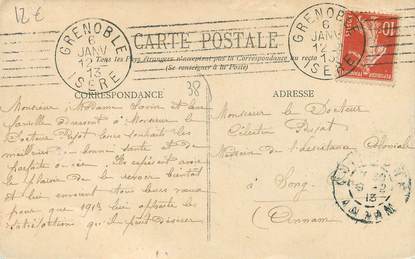 12 €
GRENOBLE
6
JANV
12
13
ISÈRE
CARTE POSTALE
GRENOBLE
6
JANV
12
13
ISÈRE
10
Tous les Pays étrangers n'acceptent pas la Correspondance au recto
(Se renseigner à la Poste)
38
CORRESPONDANCE
ADRESSE
Monsieur, Madame et leur
famille à Monsieur le
Docteur leurs souhaits les
meilleurs bonne santé et de
parfaite Ils espèrent avoir
le plaisir de le revoir bientôt
et lui envoient tous leurs vœux
pour que 1913 lui apporte les
satisfactions qu'il peut désirer
Monsieur le Docteur
Célestin
Médecin de l'Assistance Coloniale
à Song
(Annam)
13
ANNAM